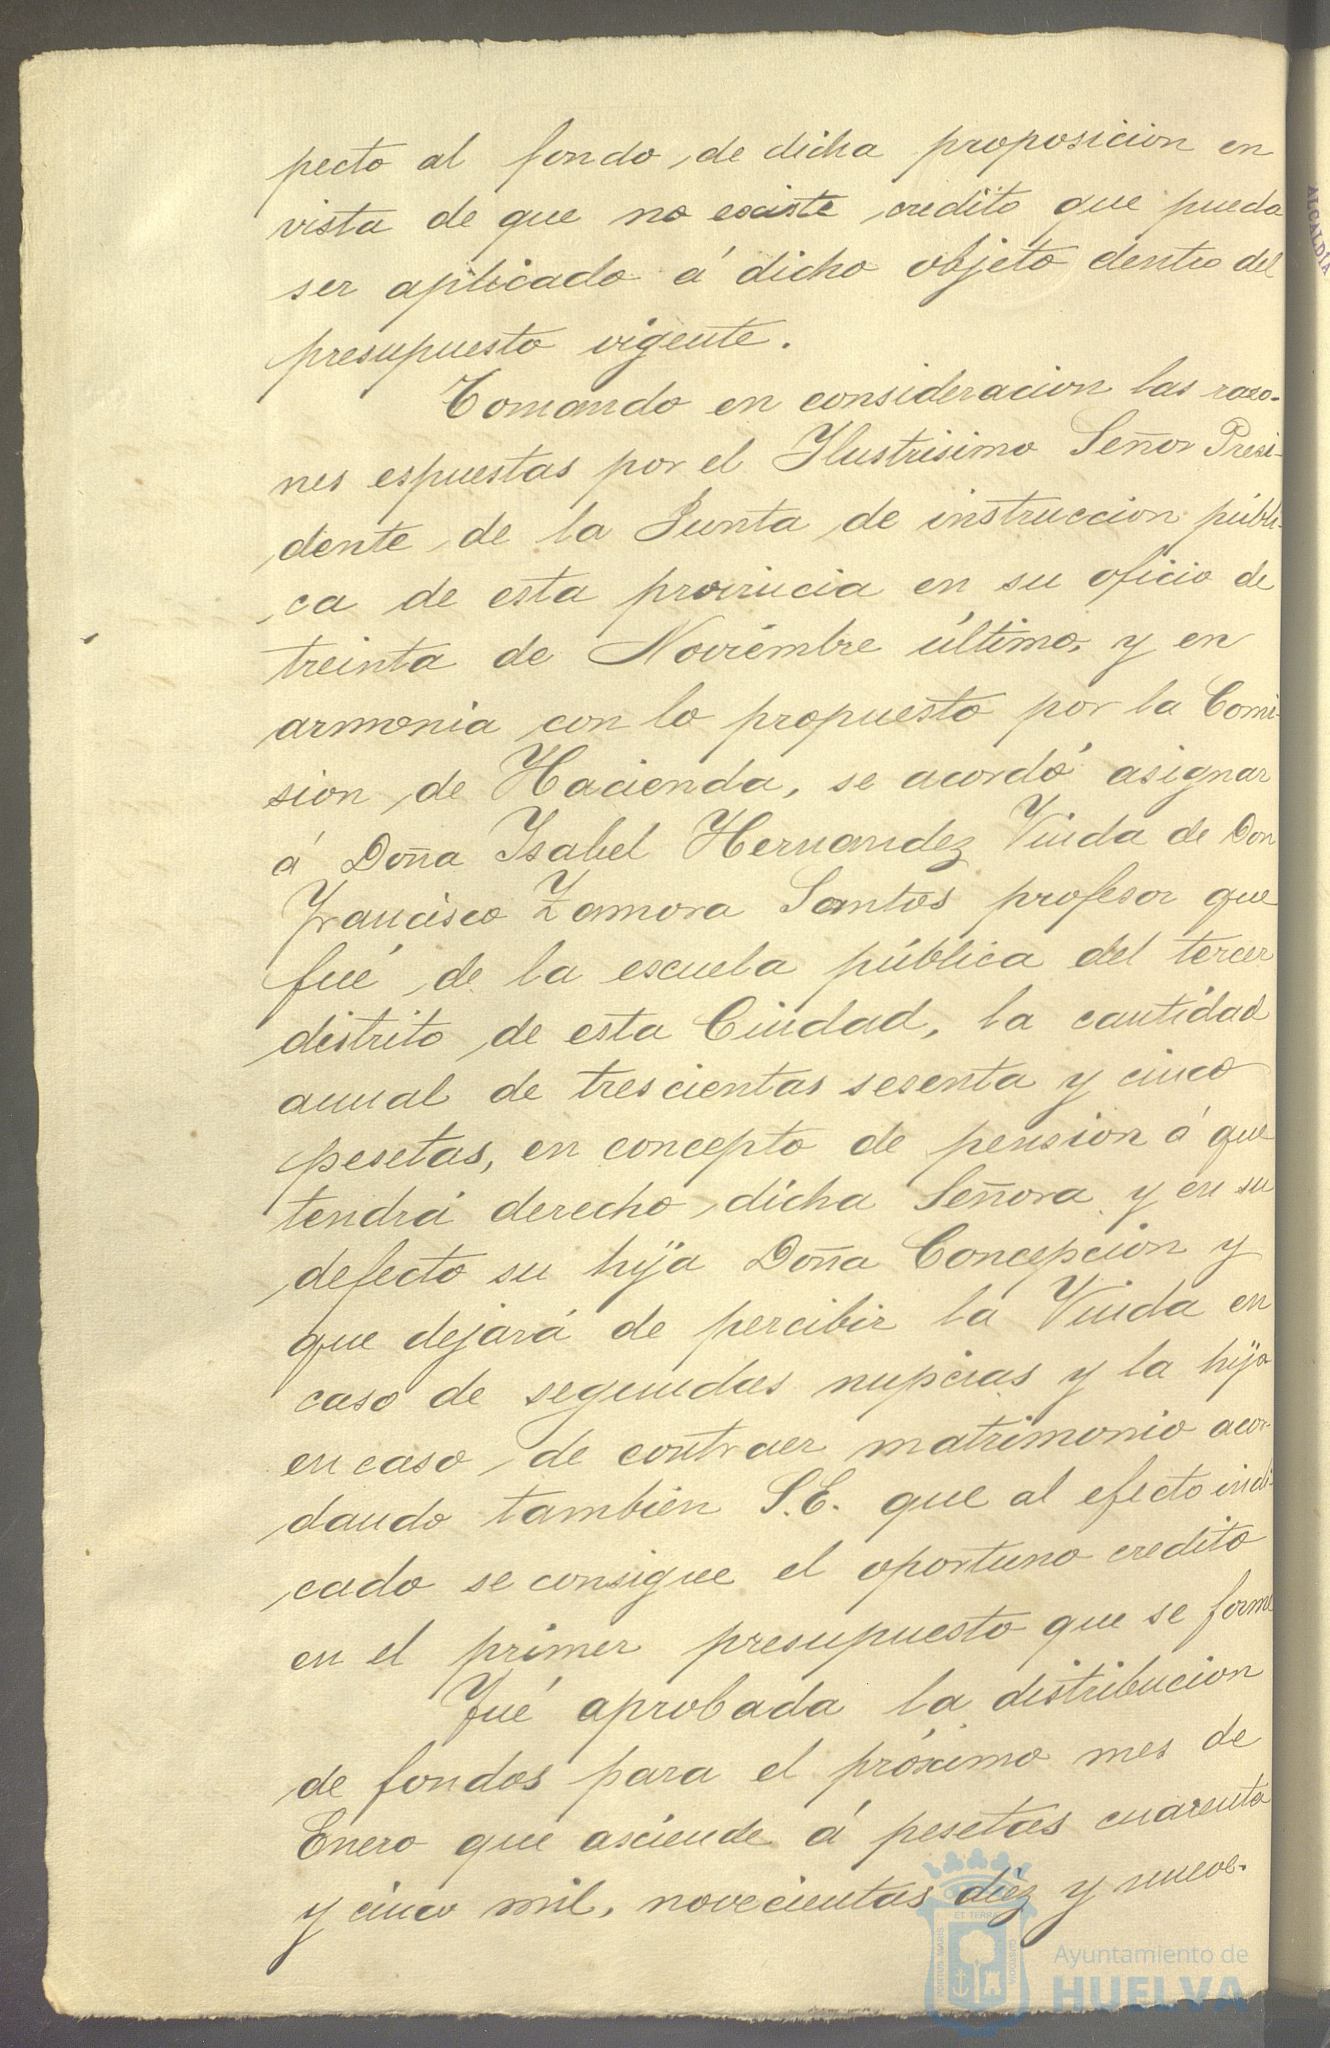 pecto al fondo de dicha proposicion en
vista de que no existe credito que pueda
ser aplicado á dicho objeto dentro del
presupuesto vigente.
Tomando en consideracion las razo-
nes espuestas por el Ilustrisimo Señor Presi-
dente de la Junta de instruccion públi-
ca de esta provincia en su oficio de
treinta de Noviembre último, y en
armonia con lo propuesto por la Comi-
sion de Hacienda, se acordó asignar
á Doña Isabel Hernandez Viuda de Don
Francisco Zamora Santos profesor que
fué de la escuela pública del tercer
distrito de esta Ciudad, la cantidad
anual de trescientas sesenta y cinco
pesetas, en concepto de pension á que
tendrá derecho dicha Señora y en su
defecto su hija Doña Concepcion y
que dejará de percibir la Viuda en
caso de segundas nupcias y la hija
en caso de contraer matrimonio acor-
dando tambien S.E. que al efecto indi-
cado se consigue el oportuno credito
en el primer presupuesto que se forme
Fué aprobada la distribucion
de fondos para el próximo mes de
Enero que asciende á pesetas cuarenta
y cinco mil, novecientas diez y nueve.
ALCALDÍA
PORTUS MARIS ET TERRAE CUSTODIA
Ayuntamiento de
HUELVA